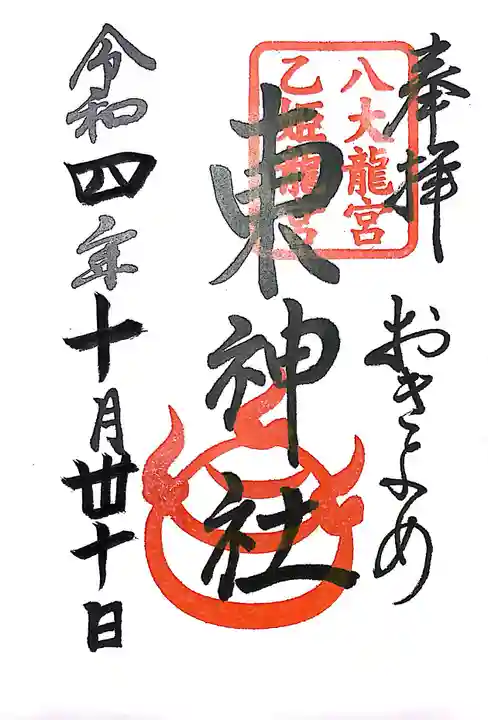 奉拝
おきよめ
八大龍宮
乙姫龍宮
東神社
令和四年十月丗十日